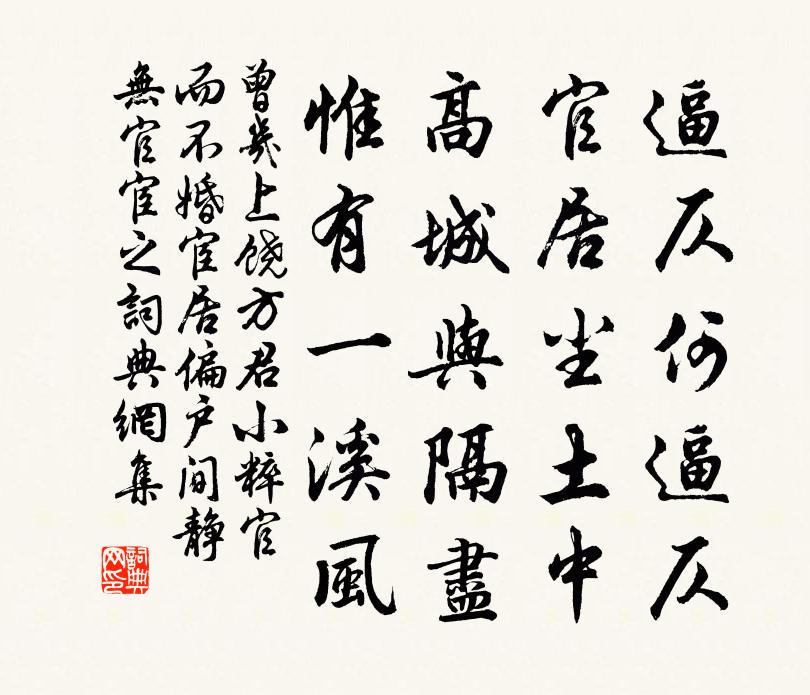 逼仄何逼仄
官居尘土中
高城與隔盡
惟有一溪風
曾幾上饶方君小粹官
而不婚宦居偏户间静
無官宦之詞典網集
詞典网印